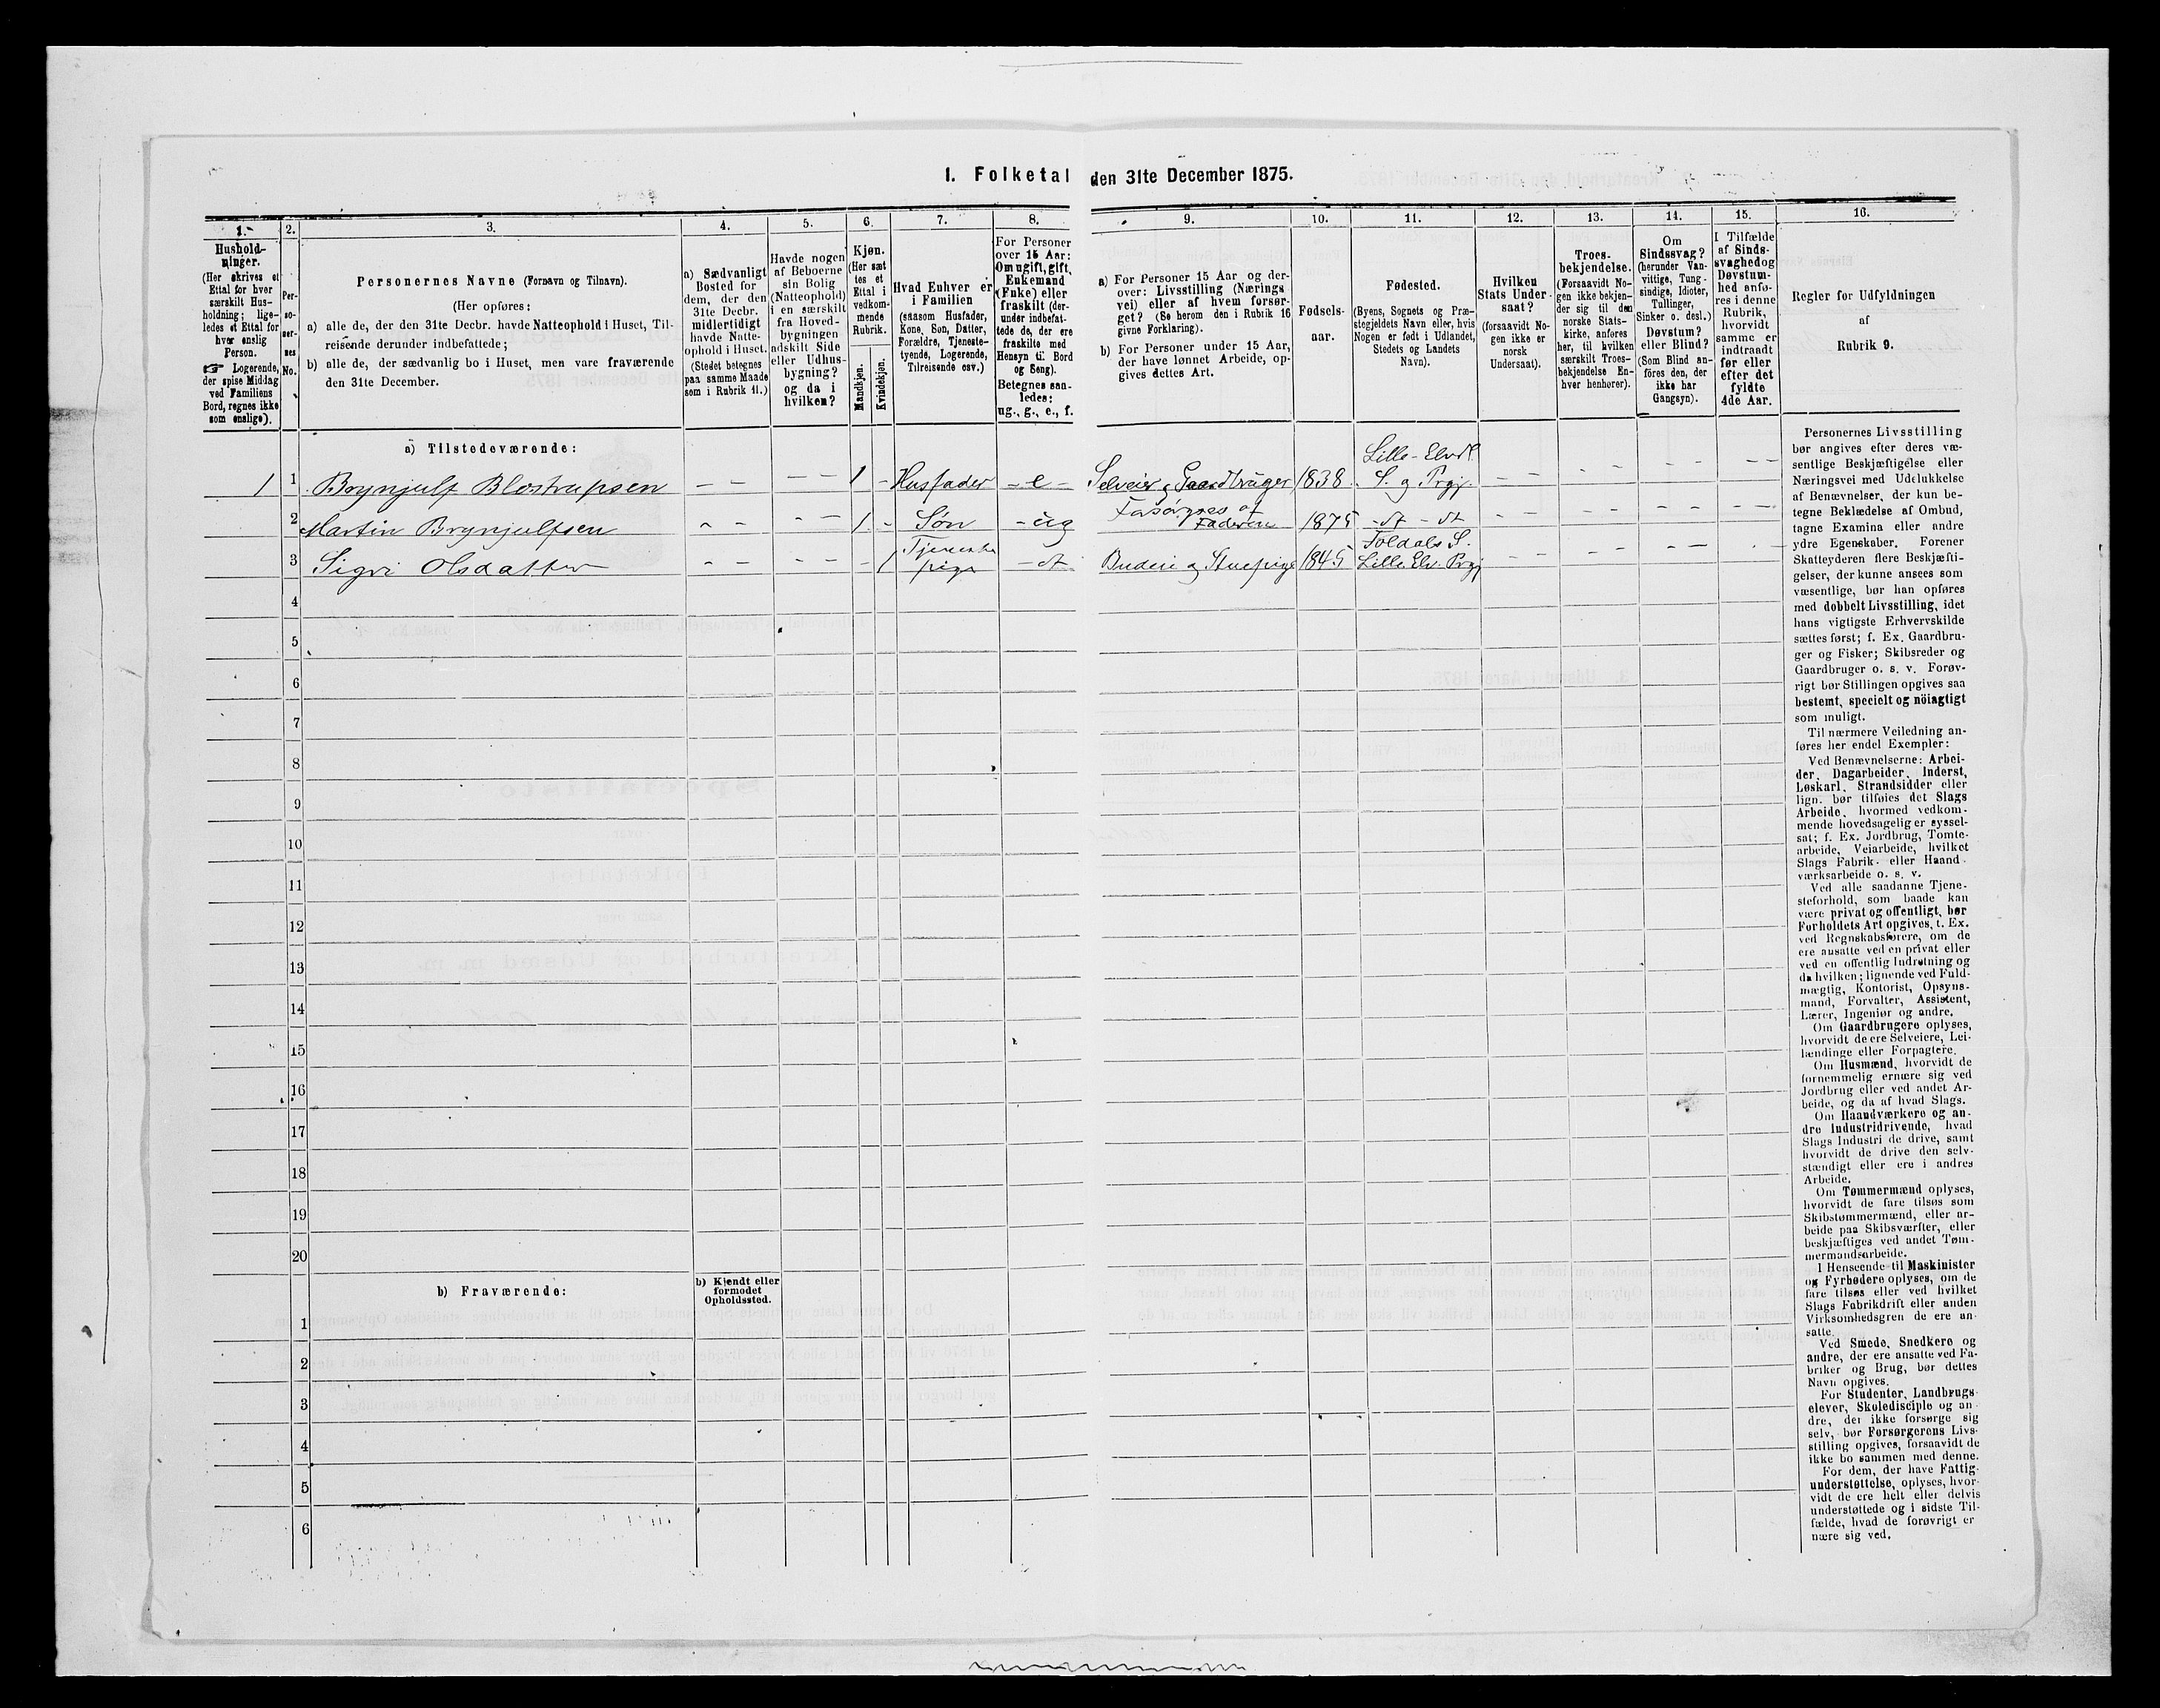 I. Folketal den 31te December 1875.
1. 2. 3. 4. 5. 6. 7. 8. 9. 10. 11. 12. 13. 14. 15. 16.
Hushold-
ninger.
(Her skrives et
Ettal for hver
særskilt Hus-
holdning; lige-
ledes et Ettal for
hver enslig
Person.
☞ Logerende,
der spise Middag
ved Familiens
Bord, regnes ikke
som enslige).
Per-
so-
ner-
nes
No.
Personernes Navne (Fornavn og Tilnavn).
(Her opføres:
a) alle de, der den 31te Decbr. havde Natteophold i Huset, Til-
reisende derunder indbefattede;
b) alle de, der sædvanlig bo i Huset, men vare fraværende
den 31te December.
a) Sædvanligt
Bosted for
dem, der den
31te Decbr.
midlertidigt
havde Natte-
ophold i Huset.
(Stedet betegnes
paa samme Maade
som i Rubrik 11.)
Havde nogen
af Beboerne
sin Bolig
(Natteophold)
i en særskilt
fra Hoved-
bygningen
adskilt Side
eller Udhus-
bygning?
og da i
hvilken?
Kjøn.
(Her sæt
tes et
Ettal i
vedkom-
mende
Rubrik.
Mandkjøn.
Kvindekjøn.
Hvad Enhver er
i Familien
(saasom Husfader,
Kone, Søn, Datter,
Forældre, Tjeneste-
tyende, Logerende,
Tilreisende osv.)
For Personer
over 15 Aar:
Om ugift, gift,
Enkemand
(Enke) eller
fraskilt (der-
under indbefat-
tede de, der ere
fraskilte med
Hensyn til Bord
og Seng).
Betegnes saa-
ledes:
ug., g., e., f.
a) For Personer 15 Aar og der-
over: Livsstilling (Nærings
vei) eller af hvem forsør-
get? (Se herom den i Rubrik 16
givne Forklaring).
b) For Personer under 15 Aar,
der have lønnet Arbeide, op-
gives dettes Art.
Fødsels-
aar.
Fødested.
(Byens, Sognets og Præ-
stegjeldets Navn eller, hvis
Nogen er født i Udlandet,
Stedets og Landets
Navn).
Hvilken
Stats Under-
saat?
(forsaavidt No-
gen ikke er
norsk
Undersaat).
Troes-
bekjendelse.
(Forsaavidt No-
gen ikke bekjen-
der sig til den
norske Stats-
kirke, anføres
her, til hvilken
særskilt Troes-
bekjendelse En-
hver henhører).
Om
Sindssvag?
(herunder Van-
vittige, Tung-
sindige, Idioter,
Tullinger,
Sinker o. desl.)
Døvstum?
eller Blind?
(Som Blind an-
føres den, der
ikke har
Gangsyn).
I Tilfælde
af Sinds-
svaghedog
Døvstum-
hed anfø-
res i denne
Rubrik,
hvorvidt
samme er
indtraadt
før eller
efter det
fyldte
4de Aar.
Regler for Udfyldningen
af
Rubrik 9.
a) Tilstedeværende:
1 1 Brynjulf Blostrupsen — — — — 1 - Husfader - e - Selveier & Gaardbruger 1838 Lille-Elvd. S. og Prgj. — — — — — — — —
2 Martin Brynjulfsen — — — — 1 - Søn - ug Forsørges af Faderen 1875 - dt - dt — — — — — — — —
3 Sigri Olsdatter — — — — - 1 Tjenestepige - dt Budeie og Stuepige 1845 Foldals S. Lille Elv. Prgj — — — — — — —
4
5
6
7
8
9
10
11
12
13
14
15
16
17
18
19
20
b) Fraværende:
b) Kjendt eller
formodet
Opholdssted.
1
2
3
4
5
6
Personernes Livsstilling
bør angives efter deres væ-
sentlige Beskjæftigelse eller
Næringsvei med Udelukkelse
af Benævnelser, der kun be-
tegne Beklædelse af Ombud,
tagne Examina eller andre
ydre Egenskaber. Forener
Skatteyderen flere Beskjæfti-
gelser, der kunne ansees som
væsentlige, bør han opføres
med dobbelt Livsstilling, idet
hans vigtigste Erhvervskilde
sættes først; f. Ex. Gaardbru-
ger og Fisker; Skibsreder og
Gaardbruger o. s. v. Forøv-
rigt bør Stillingen opgives saa
bestemt, specielt og nöiagtigt
som muligt.
Til nærmere Veiledning an-
føres her endel Exempler:
Ved Benævnelserne: Arbei-
der, Dagarbeider, Inderst,
Løskarl, Strandsidder eller
lign. bør tilføies det Slags
Arbeide, hvormed vedkom-
mende hovedsagelig er syssel-
sat; f. Ex. Jordbrug, Tomte-
arbeide, Veiarbeide, hvilket
Slags Fabrik- eller Haand-
værksarbeide o. s. v.
Ved alle saadanne Tjene-
steforhold, som baade kan
være privat og offentligt, bør
Forholdets Art opgives, t. Ex.
ved Regnskabsførere, om de
ere ansatte ved en privat eller
ved en offentlig Indretning og
da hvilken; lignende ved Fuld-
mægtig, Kontorist, Opsyns-
mand, Forvalter, Assistent,
Lærer, Ingeniør og andre.
Om Gaardbrugere oplyses,
hvorvidt de ere Selveiere, Lei-
lændinge eller Forpagtere.
Om Husmænd, hvorvidt de
fornemmelig ernære sig ved
Jordbrug eller ved andet Ar-
beide, og da af hvad Slags.
Om Haandværkere og an-
dre Industridrivende, hvad
Slags Industri de drive, samt
hvorvidt de drive den selv-
stændigt eller ere i andres
Arbeide.
Om Tømmermænd oplyses,
hvorvidt de fare tilsøs som
Skibstømmermænd, eller ar-
beide paa Skibsværfter, eller
beskjæftiges ved andet Tøm-
mermandsarbeide.
I Henseende til Maskinister
og Fyrbødere oplyses, om de
fare tilsøs eller ved hvilket
Slags Fabrikdrift eller anden
Virksomhedsgren de ere an-
satte.
Ved Smede, Snedkere og
andre, der ere ansatte ved Fa-
briker og Brug, bør dettes
Navn opgives.
For Studenter, Landbrugs-
elever, Skoledisciple og an-
dre, der ikke forsørge sig
selv, bør Forsørgerens Livs-
stilling opgives, forsaavidt de
ikke bo sammen med denne.
For dem, der have Fattig-
understøttelse, oplyses, hvor-
vidt de ere helt eller delvis
understøttede og i sidste Til-
fælde, hvad de forøvrigt er
nære sig ved.